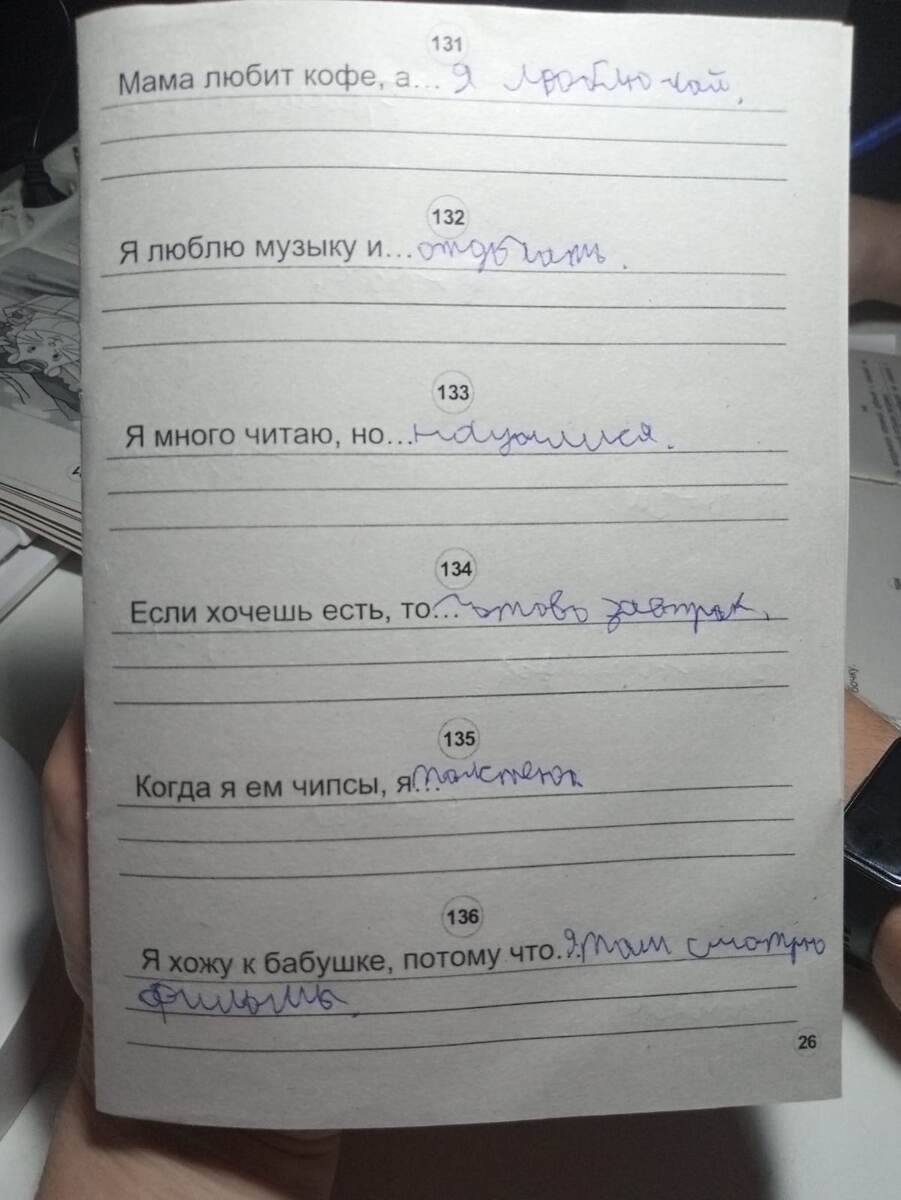 131
Мама любит кофе, а... я люблю чай.
132
Я люблю музыку и... отдыхать.
133
Я много читаю, но...
134
Если хочешь есть, то... готовь завтрак.
135
Когда я ем чипсы, я... толстею
136
Я хожу к бабушке, потому что... Я там смотрю
фильмы.
26